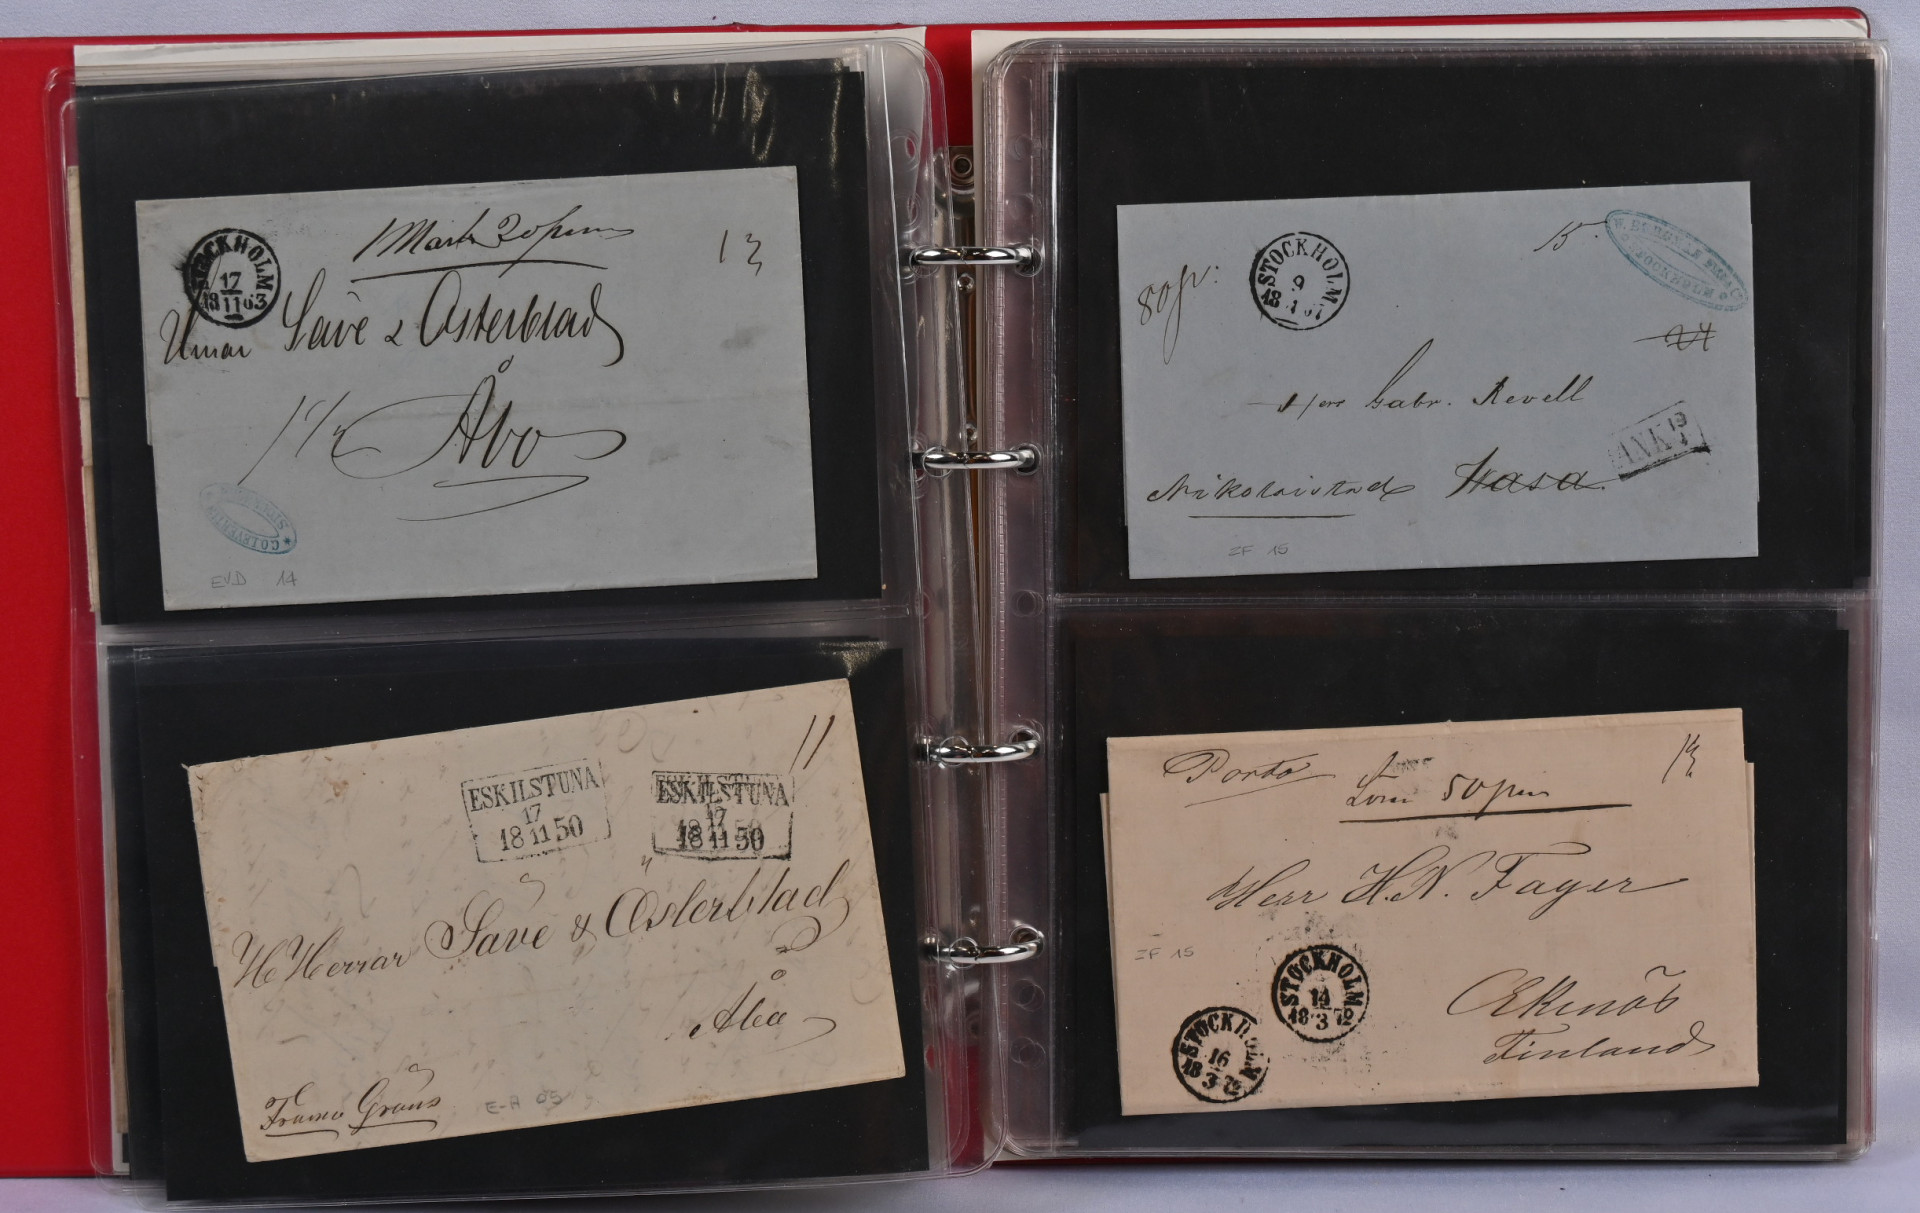 1 Mark 20 penni
13
STOCKHOLM
17
18 11 63
Säve & Österblad
Åbo
EVD 14
11
ESKILSTUNA
17
18 11 50
ESKILSTUNA
17
18 11 50
Herrar Säve & Österblad
Åbo
Franco Gräns
E-A 05
15
STOCKHOLM
9
18 1 67
STOCKHOLM
80 p:
24
Herr Gabr. Revell
ANK 19
1
Nikolaistad Wasa.
ZF 15
Porto
50 pen
Herr H. N. Fager
ZF 15
STOCKHOLM
14
18 3 72
Ekenäs
STOCKHOLM
16
18 3 72
Finland